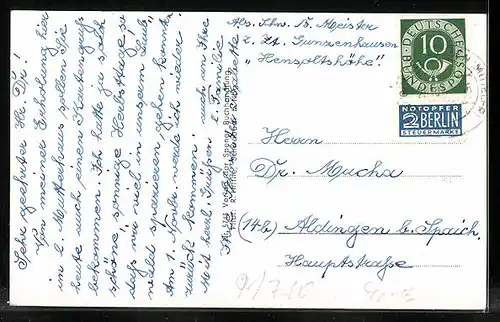 Sehr geehrter Hr. Dr.!
Von meiner Erholung hier
im l. Mutterhaus sollen Sie
heute auch einen Kartengruß
bekommen. Ich hatte ja solch
schöne, sonnige Herbsttage so
daß wir viel in unserm Laub-
wald spazieren gehen konnten.
Am 1. Novbr. werde ich wieder
zurück kommen.
Mit herzl. Grüßen auch an Ihre
l. Familie
Ihre
Abs. Schw. B. Meister
z. Zt. Gunzenhausen
"Hensoltshöhe"
DEUTSCHE BUNDESPOST
10
NOTOPFER
2 BERLIN
STEUERMARKE
Herrn
Dr. Mucha
(14b) Aldingen b. Spaich.
Hauptstraße